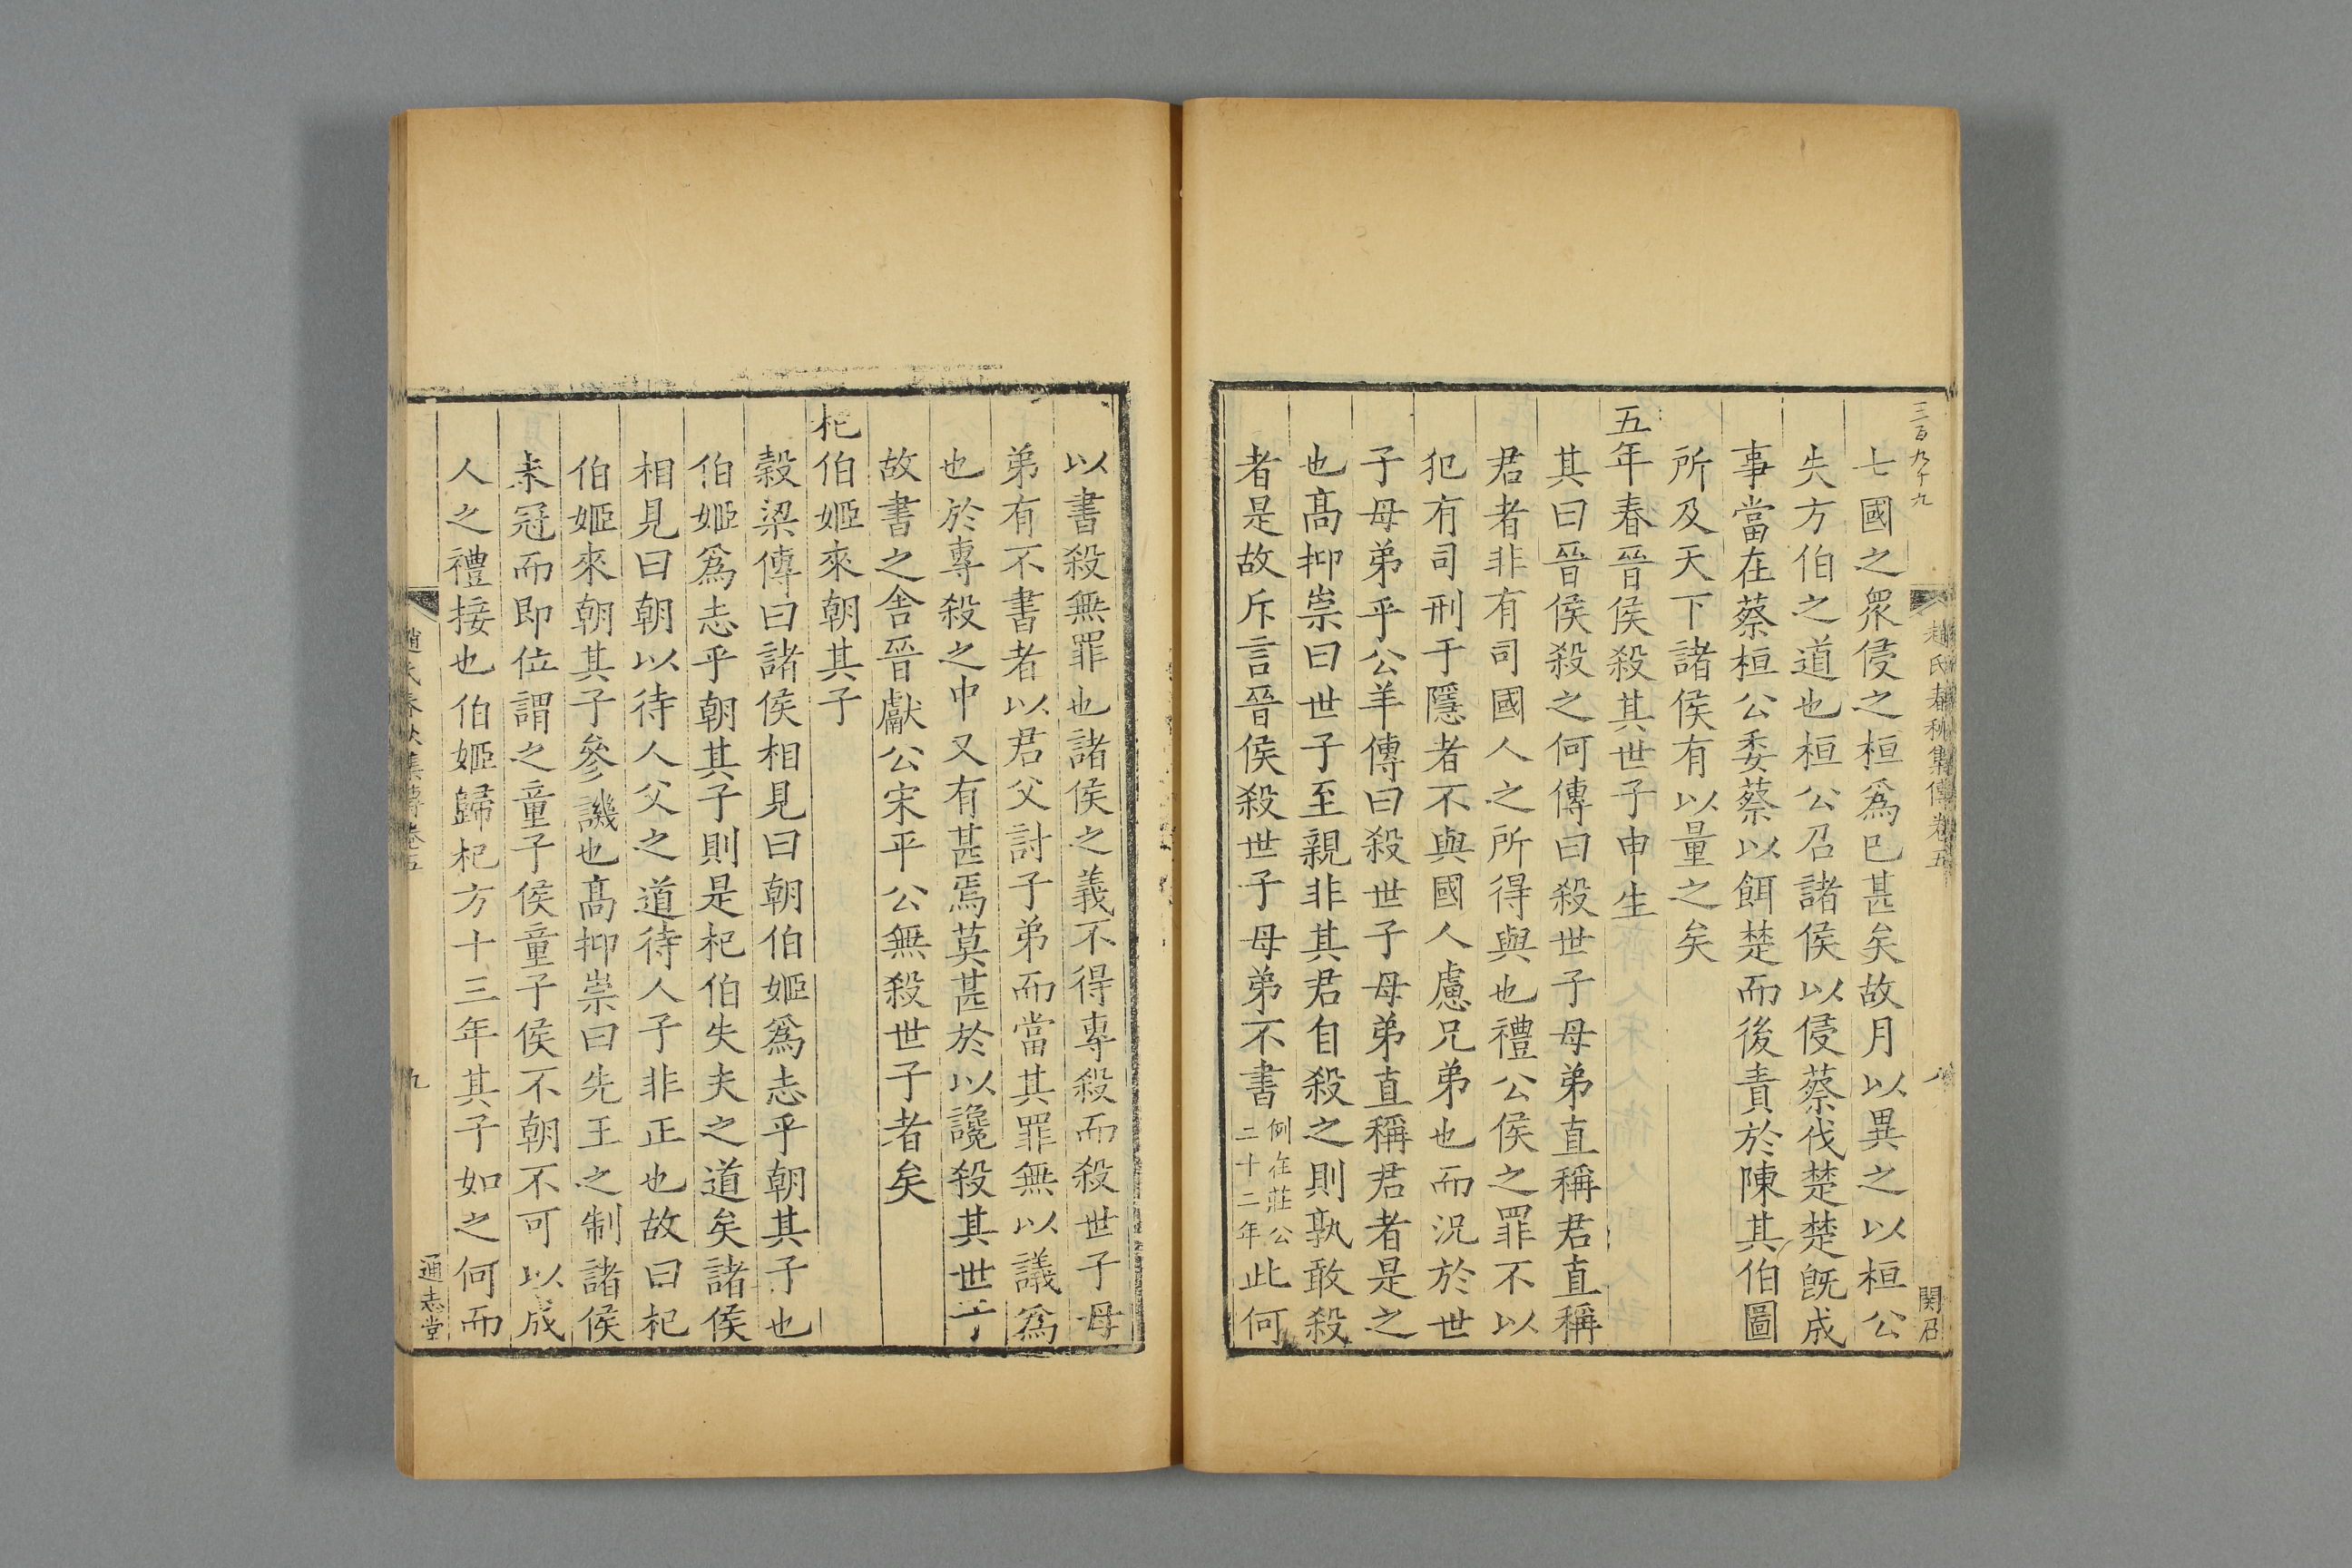 三百九十九
趙氏春秋集傳卷五
八
関召
七國之衆侵之桓爲已甚矣故月以異之以桓公
失方伯之道也桓公召諸侯以侵蔡伐楚楚旣成
事當在蔡桓公委蔡以餌楚而後責於陳其伯圖
所及天下諸侯有以量之矣
五年春晉侯殺其世子申生
其曰晉侯殺之何傳曰殺世子母弟直稱君直稱
君者非有司國人之所得與也禮公侯之罪不以
犯有司刑于隱者不與國人慮兄弟也而況於世
子母弟乎公羊傳曰殺世子母弟直稱君者是之
也髙抑崇曰世子至親非其君自殺之則孰敢殺
者是故斥言晉侯殺世子母弟不書例在莊公二十二年此何
以書殺無罪也諸侯之義不得專殺而殺世子母
弟有不書者以君父討子弟而當其罪無以議爲
也於專殺之中又有甚焉莫甚於以讒殺其世子
故書之舍晉獻公宋平公無殺世子者矣
杞伯姬來朝其子
榖梁傳曰諸侯相見曰朝伯姬爲志乎朝其子也
伯姬爲志乎朝其子則是杞伯失夫之道矣諸侯
相見曰朝以待人父之道待人子非正也故曰杞
伯姬來朝其子參譏也髙抑崇曰先王之制諸侯
未冠而即位謂之童子侯童子侯不朝不可以成
人之禮接也伯姬歸杞方十三年其子如之何而
趙氏春秋集傳卷五
九
通志堂